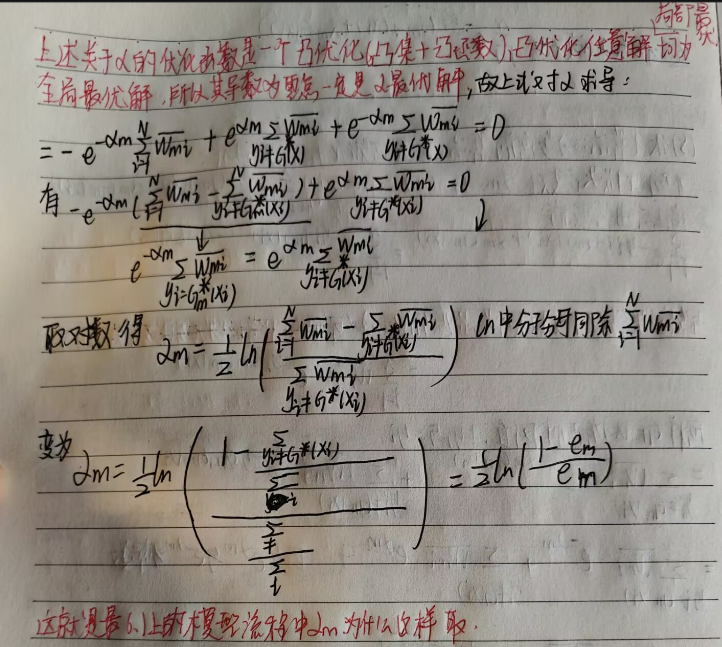 局部最优
上述关于α的优化函数是一个凸优化(凸集+凸函数),凸优化任意解均为
全局最优解,所以其导数为零点一定是α最优解,故上式对α求导:
= -e^{-αm} Σ_{i=1}^{N} \overline{Wmi} + e^{αm} Σ_{yi≠G(x)} \overline{Wmi} + e^{-αm} Σ_{yi≠G^*(x)} \overline{Wmi} = 0
有 -e^{-αm} (Σ_{i=1}^{N} \overline{Wmi} - Σ_{yi≠G_m^*(xi)}^{N} \overline{Wmi}) + e^{αm} Σ_{yi≠G^*(xi)} \overline{Wmi} = 0
↓ ↓
e^{-αm} Σ_{yi=G_m^*(xi)} \overline{Wmi} = e^{αm} Σ_{yi≠G^*(xi)} \overline{Wmi}
取对数得 αm = \frac{1}{2} ln( \frac{Σ_{i=1}^{N} \overline{Wmi} - Σ_{yi≠G^*(xi)} \overline{Wmi}}{Σ_{yi≠G^*(xi)} \overline{Wmi}} ) ln中分子分母同除 Σ_{i=1}^{N} \overline{Wmi}
变为 αm = \frac{1}{2} ln( \frac{1 - \frac{Σ_{yi≠G^*(xi)}}{Σ_{i}}}{\frac{Σ_{≠}}{Σ_{i}}} ) = \frac{1}{2} ln( \frac{1-em}{em} )
这就是最6.1上的模型流程中αm为什么这样取.